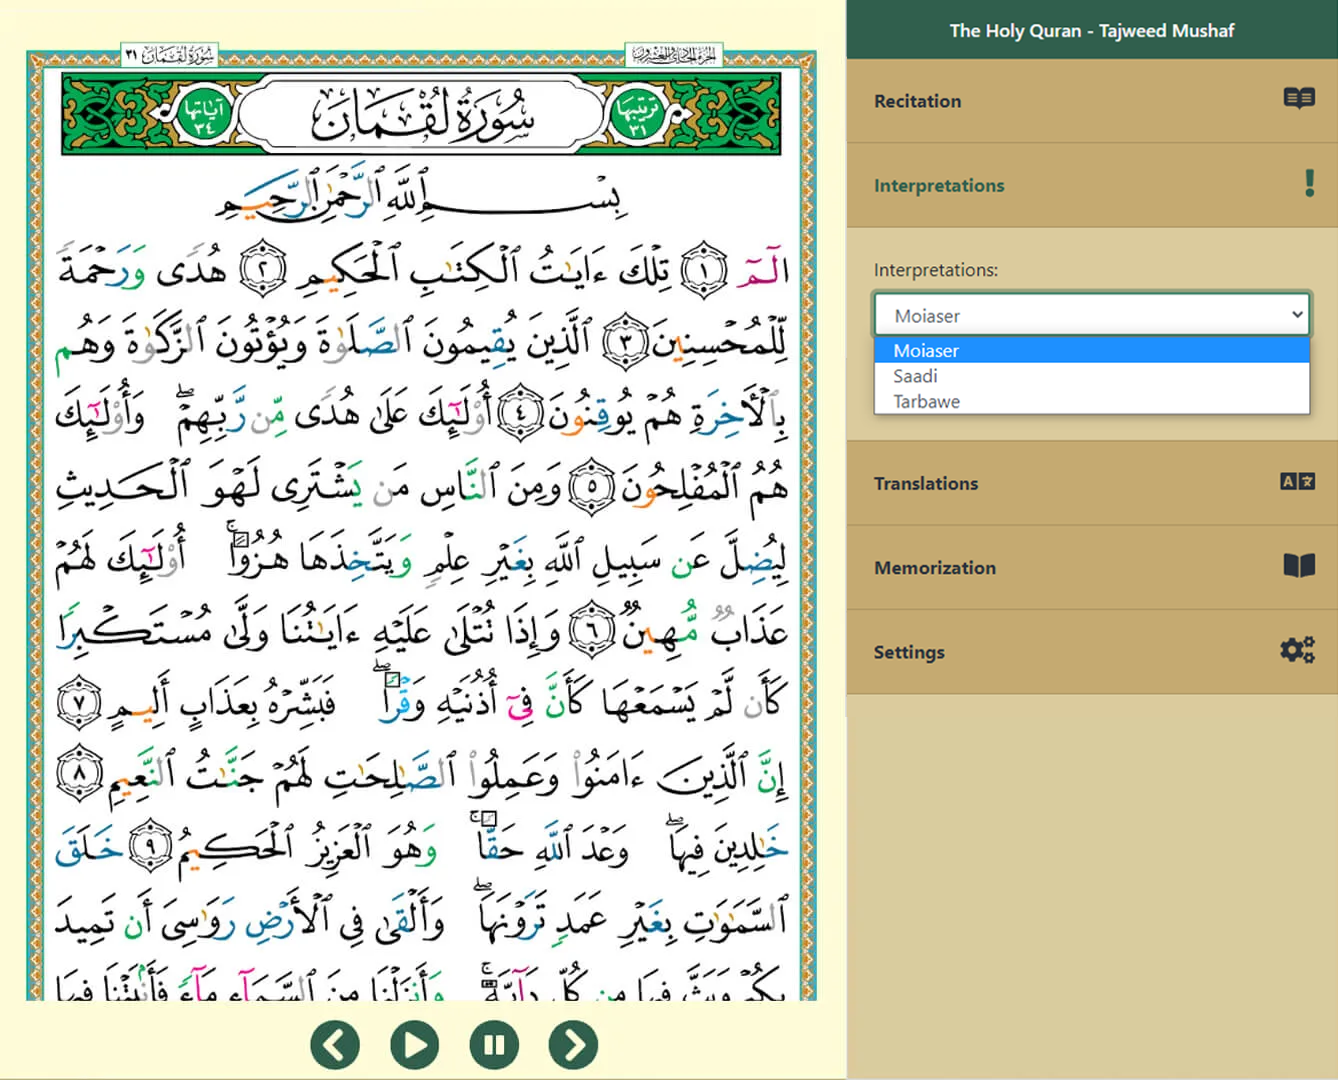 سُورَةُ لُقْمَان ٣١
الجزء الحادي والعشرون
آياتها ٣٤
سُورَةُ لُقْمَانَ
ترتيبها ٣١
بِسْمِ ٱللَّهِ ٱلرَّحْمَٰنِ ٱلرَّحِيمِ
الٓمٓ ١ تِلْكَ ءَايَٰتُ ٱلْكِتَٰبِ ٱلْحَكِيمِ ٢ هُدًى وَرَحْمَةً
لِّلْمُحْسِنِينَ ٣ ٱلَّذِينَ يُقِيمُونَ ٱلصَّلَوٰةَ وَيُؤْتُونَ ٱلزَّكَوٰةَ وَهُم
بِٱلْأَخِرَةِ هُمْ يُوقِنُونَ ٤ أُوْلَٰٓئِكَ عَلَىٰ هُدًى مِّن رَّبِّهِمْ ۖ وَأُوْلَٰٓئِكَ
هُمُ ٱلْمُفْلِحُونَ ٥ وَمِنَ ٱلنَّاسِ مَن يَشْتَرِى لَهْوَ ٱلْحَدِيثِ
لِيُضِلَّ عَن سَبِيلِ ٱللَّهِ بِغَيْرِ عِلْمٍ وَيَتَّخِذَهَا هُزُوًا ۚ أُوْلَٰٓئِكَ لَهُمْ
عَذَابٌ مُّهِينٌ ٦ وَإِذَا تُتْلَىٰ عَلَيْهِ ءَايَٰتُنَا وَلَّىٰ مُسْتَكْبِرًا
كَأَن لَّمْ يَسْمَعْهَا كَأَنَّ فِىٓ أُذُنَيْهِ وَقْرًا ۖ فَبَشِّرْهُ بِعَذَابٍ أَلِيمٍ ٧
إِنَّ ٱلَّذِينَ ءَامَنُوا۟ وَعَمِلُوا۟ ٱلصَّٰلِحَٰتِ لَهُمْ جَنَّٰتُ ٱلنَّعِيمِ ٨
خَٰلِدِينَ فِيهَا ۖ وَعْدَ ٱللَّهِ حَقًّا ۚ وَهُوَ ٱلْعَزِيزُ ٱلْحَكِيمُ ٩ خَلَقَ
ٱلسَّمَٰوَٰتِ بِغَيْرِ عَمَدٍ تَرَوْنَهَا ۖ وَأَلْقَىٰ فِى ٱلْأَرْضِ رَوَٰسِىَ أَن تَمِيدَ
بِكُمْ وَبَثَّ فِيهَا مِن كُلِّ دَآبَّةٍ ۚ وَأَنزَلْنَا مِنَ ٱلسَّمَآءِ مَآءً فَأَنۢبَتْنَا فِيهَا
The Holy Quran - Tajweed Mushaf
Recitation
Interpretations
Interpretations:
Moiaser
Moiaser
Saadi
Tarbawe
Translations
Memorization
Settings